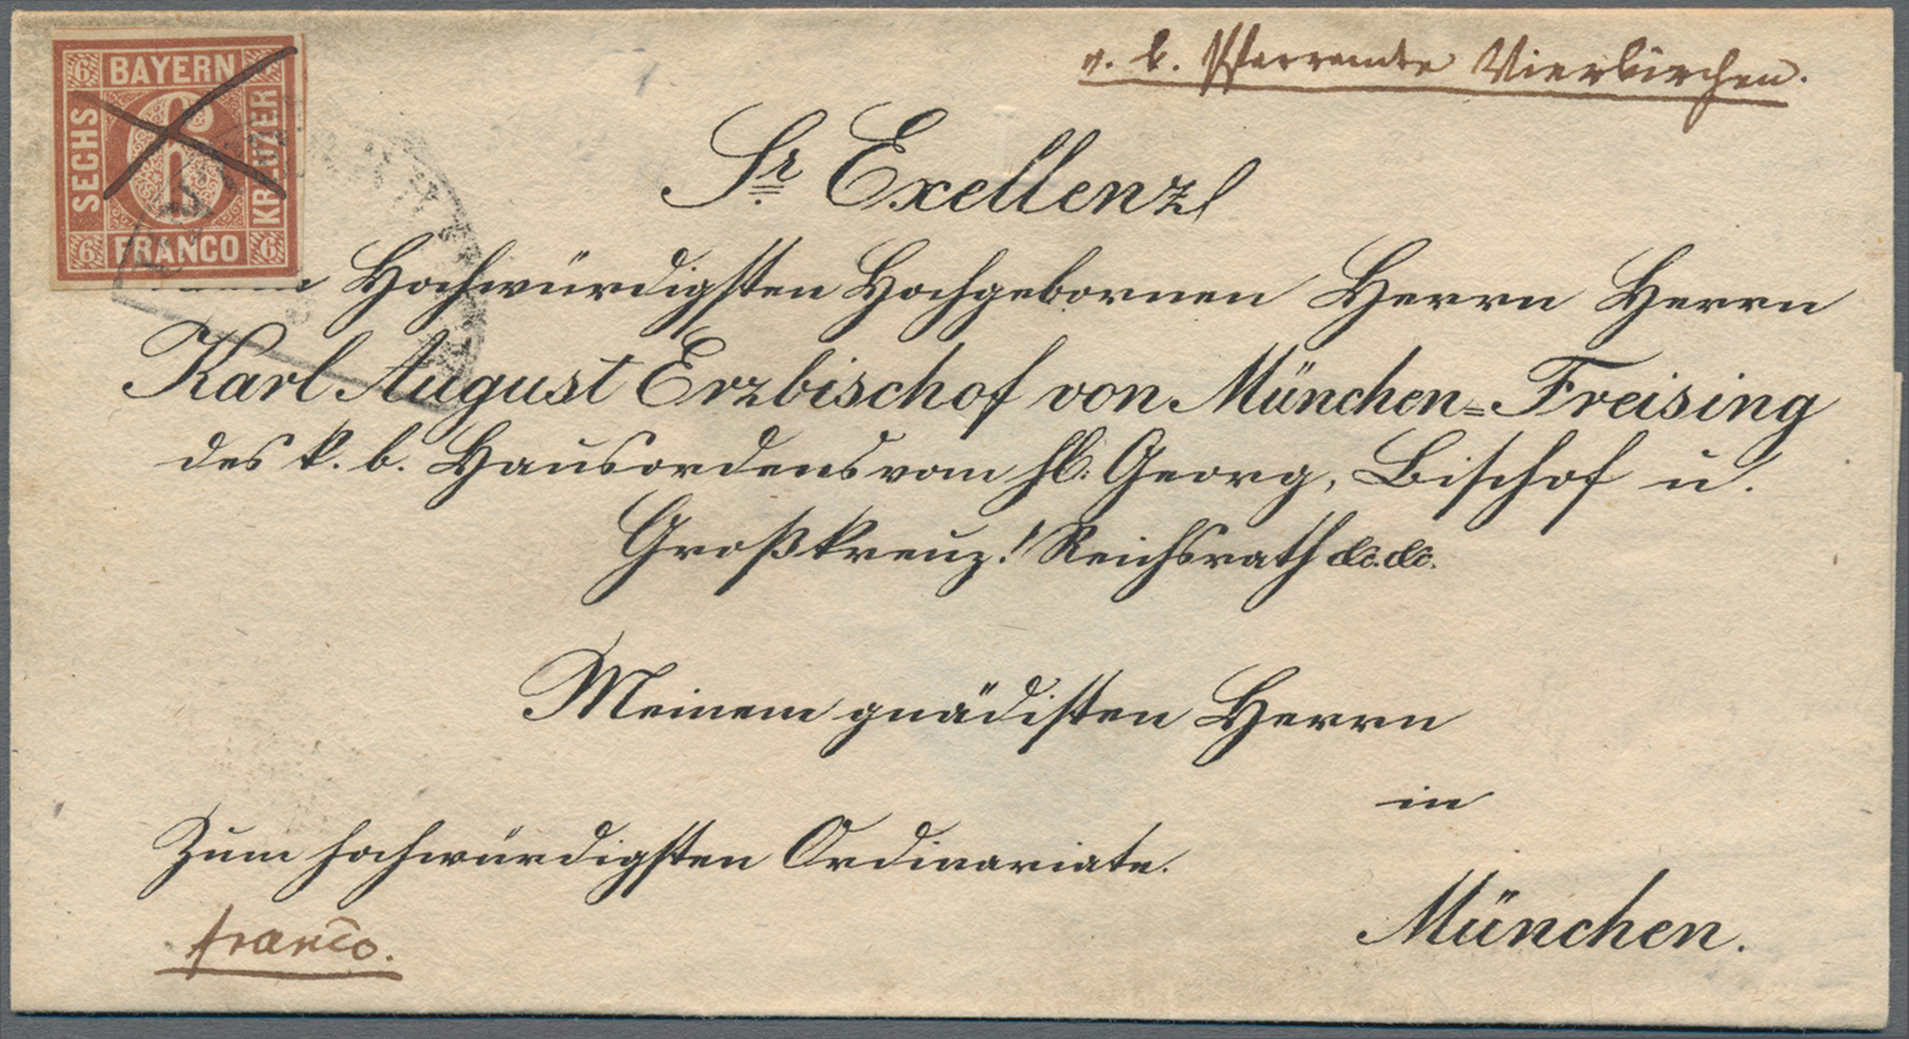 v. k. Pfarramte Vierkirchen.
6 BAYERN 6
SECHS 6 KREUZER
6 FRANCO 6
Sr. Exellenz
Hochwürdigsten Hochgebornen Herrn Herrn
Karl August Erzbischof von München=Freising
des k. b. Hausordens vom hl. Georg, Bischof u.
Großkreuz! Reichsrath &c. &c.
Meinem gnädisten Herrn
in
Zum hochwürdigsten Ordinariate.
München.
franco.